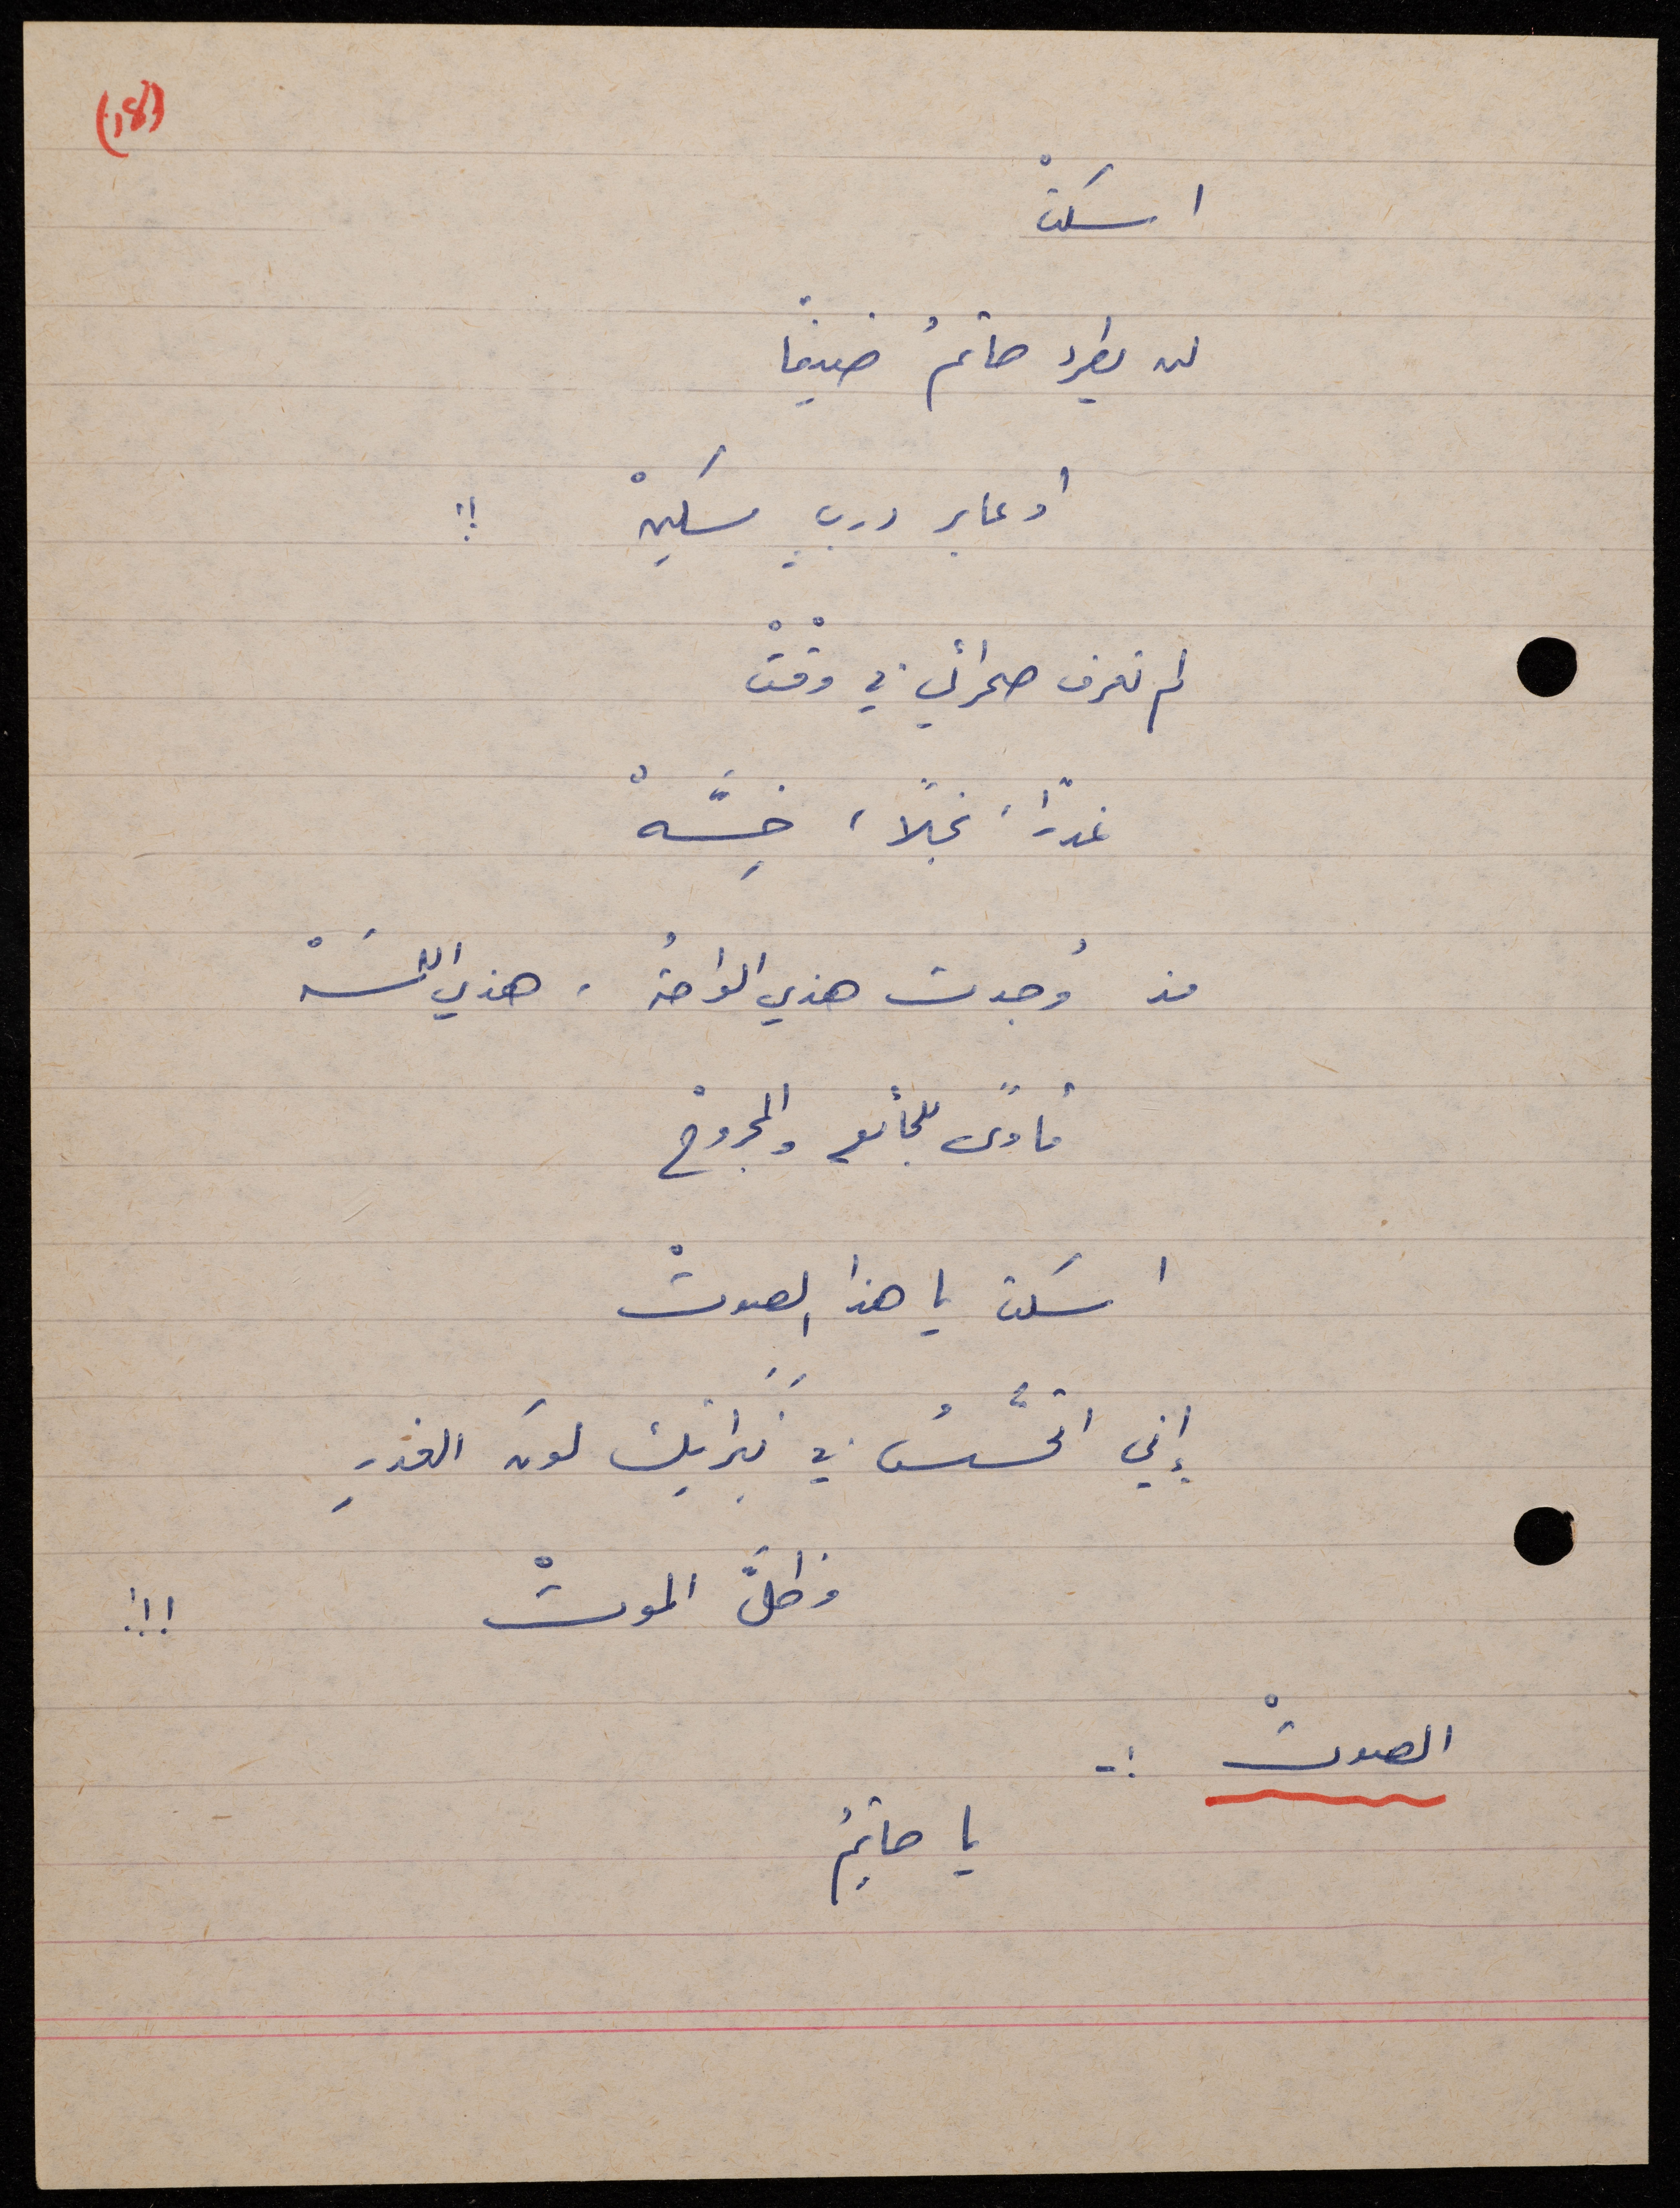 (18)
اسكَتْ
لن يطرد حاتمُ ضيفًا
او عابر دربٍ مسَكينْ !!
لم تعرف صحرائي في وقْتْ
غدرًا، بخلًا، خِسَّهْ
مذ وُجدت هذي الواحةُ ، هذي
مأوًى للجائع والمجروحْ
اسكَت يا هذا الصوتْ
إني اتحسَّسُ في نَبَراتِكَ لونَ الغدرِ
وظلَّ الموتْ !!!
الصوتْ :-
يا حاتِمُ